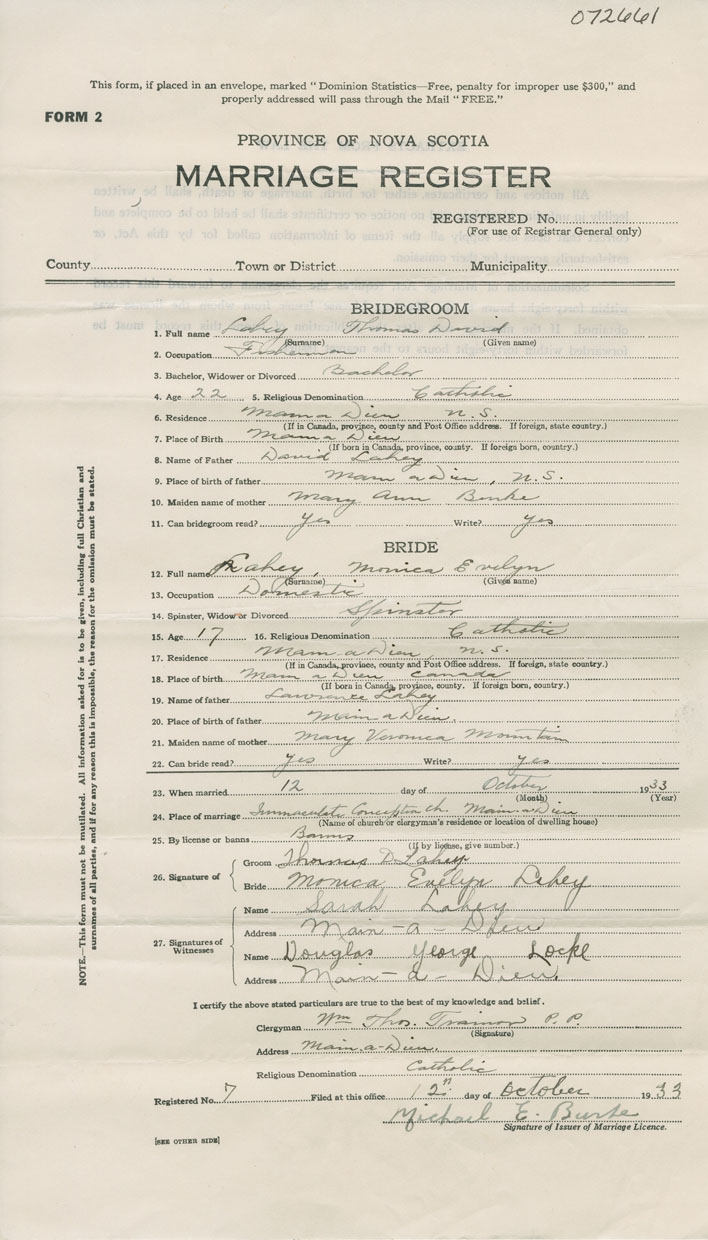 072661
This form, if placed in an envelope, marked "Dominion Statistics—Free, penalty for improper use $300," and
properly addressed will pass through the Mail "FREE."
FORM 2
PROVINCE OF NOVA SCOTIA
MARRIAGE REGISTER
REGISTERED No.
(For use of Registrar General only)
County Town or District Municipality
BRIDEGROOM
1. Full name Lahey Thomas David
(Surname) (Given name)
2. Occupation Fisherman
3. Bachelor, Widower or Divorced Bachelor
4. Age 22 5. Religious Denomination Catholic
6. Residence Main a Dieu N.S.
(If in Canada, province, county and Post Office address. If foreign, state country.)
7. Place of Birth Main a Dieu
(If born in Canada, province, county. If foreign born, country.)
8. Name of Father David Lahey
9. Place of birth of father Main a Dieu, N.S.
10. Maiden name of mother Mary Ann Burke
11. Can bridegroom read? Yes Write? Yes
BRIDE
12. Full name Lahey, Monica Evelyn
(Surname) (Given name)
13. Occupation Domestic
14. Spinster, Widow or Divorced Spinster
15. Age 17 16. Religious Denomination Catholic
17. Residence Main-a-Dieu, N.S.
(If in Canada, province, county and Post Office address. If foreign, state country.)
18. Place of birth Main a Dieu Canada
(If born in Canada, province, county. If foreign born, country.)
19. Name of father Lawrence Lahey
20. Place of birth of father Main a Dieu.
21. Maiden name of mother Mary Veronica Mountain
22. Can bride read? Yes Write? Yes
23. When married 12 day of October 1933
(Month) (Year)
24. Place of marriage Immaculate Conception Ch. Main-a-Dieu
(Name of church or clergyman's residence or location of dwelling house)
25. By license or banns Banns
(If by license, give number.)
26. Signature of
Groom Thomas D Lahey
Bride Monica Evelyn Lahey
27. Signatures of Witnesses
Name Sarah Lahey
Address Main-a-Dieu
Name Douglas George Locke
Address Main-a-Dieu.
I certify the above stated particulars are true to the best of my knowledge and belief.
Clergyman Wm Thos. Trainor P.P.
(Signature)
Address Main-a-Dieu.
Religious Denomination Catholic
Registered No. 7 Filed at this office 12th day of October 1933
Michael E. Burke
Signature of Issuer of Marriage Licence.
[SEE OTHER SIDE]
NOTE.—This form must not be mutilated. All information asked for is to be given, including full Christian and
surnames of all parties, and if for any reason this is impossible, the reason for the omission must be stated.